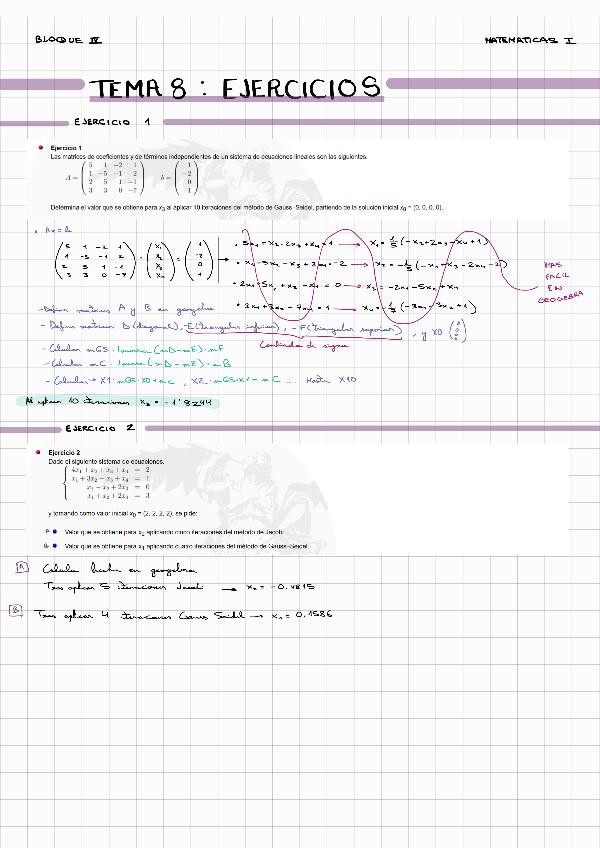 BLOQUE IV
MATEMATICAS I
TEMA 8 : EJERCICIOS
EJERCICIO 1
Ejercicio 1
Las matrices de coeficientes y de términos independientes de un sistema de ecuaciones lineales son las siguientes.
A = ( 5 1 -2 1 ; 1 -5 -1 2 ; 2 5 1 -1 ; 3 3 0 -7 ) b = ( 1 ; -2 ; 0 ; 1 )
Determina el valor que se obtiene para x₃ al aplicar 10 iteraciones del método de Gauss-Seidel, partiendo de la solución inicial x₀ = (0, 0, 0, 0).
Ax = b
MAS
FACIL
EN
GEOGEBRA
- Definir matrices A y B en geogebra
- Definir matrices D (diagonal), -E (triangular inferior), -F (triangular superior), y X0 ( 0 0 0 0 )
Cambiada de signo
- Calcular mGS = Inversa(mD-mE) · mF
- Calcular mC = Inversa(mD-mE) · mB
- Calcular → X1 = mGS·X0+mC , X2 = mGS·X1+mC .... Hasta X10
Al aplicar 10 iteraciones x₃ = -1'8244
EJERCICIO 2
Ejercicio 2
Dado el siguiente sistema de ecuaciones.
4x₁ + x₂ + x₃ + x₄ = 2
x₁ + 3x₂ - x₃ + x₄ = 1
x₁ - x₂ + 2x₃ = 0
x₁ + x₂ + 2x₄ = 3
y tomando como valor inicial x₀ = (2, 2, 2, 2), se pide:
A Valor que se obtiene para x₂ aplicando cinco iteraciones del método de Jacobi.
B Valor que se obtiene para x₁ aplicando cuatro iteraciones del método de Gauss-Seidel.
A Calculo hecho en geogebra
Tras aplicar 5 iteraciones Jacobi → x₂ = -0.4815
B Tras aplicar 4 iteraciones Gauss Seidel → x₁ = 0.1586